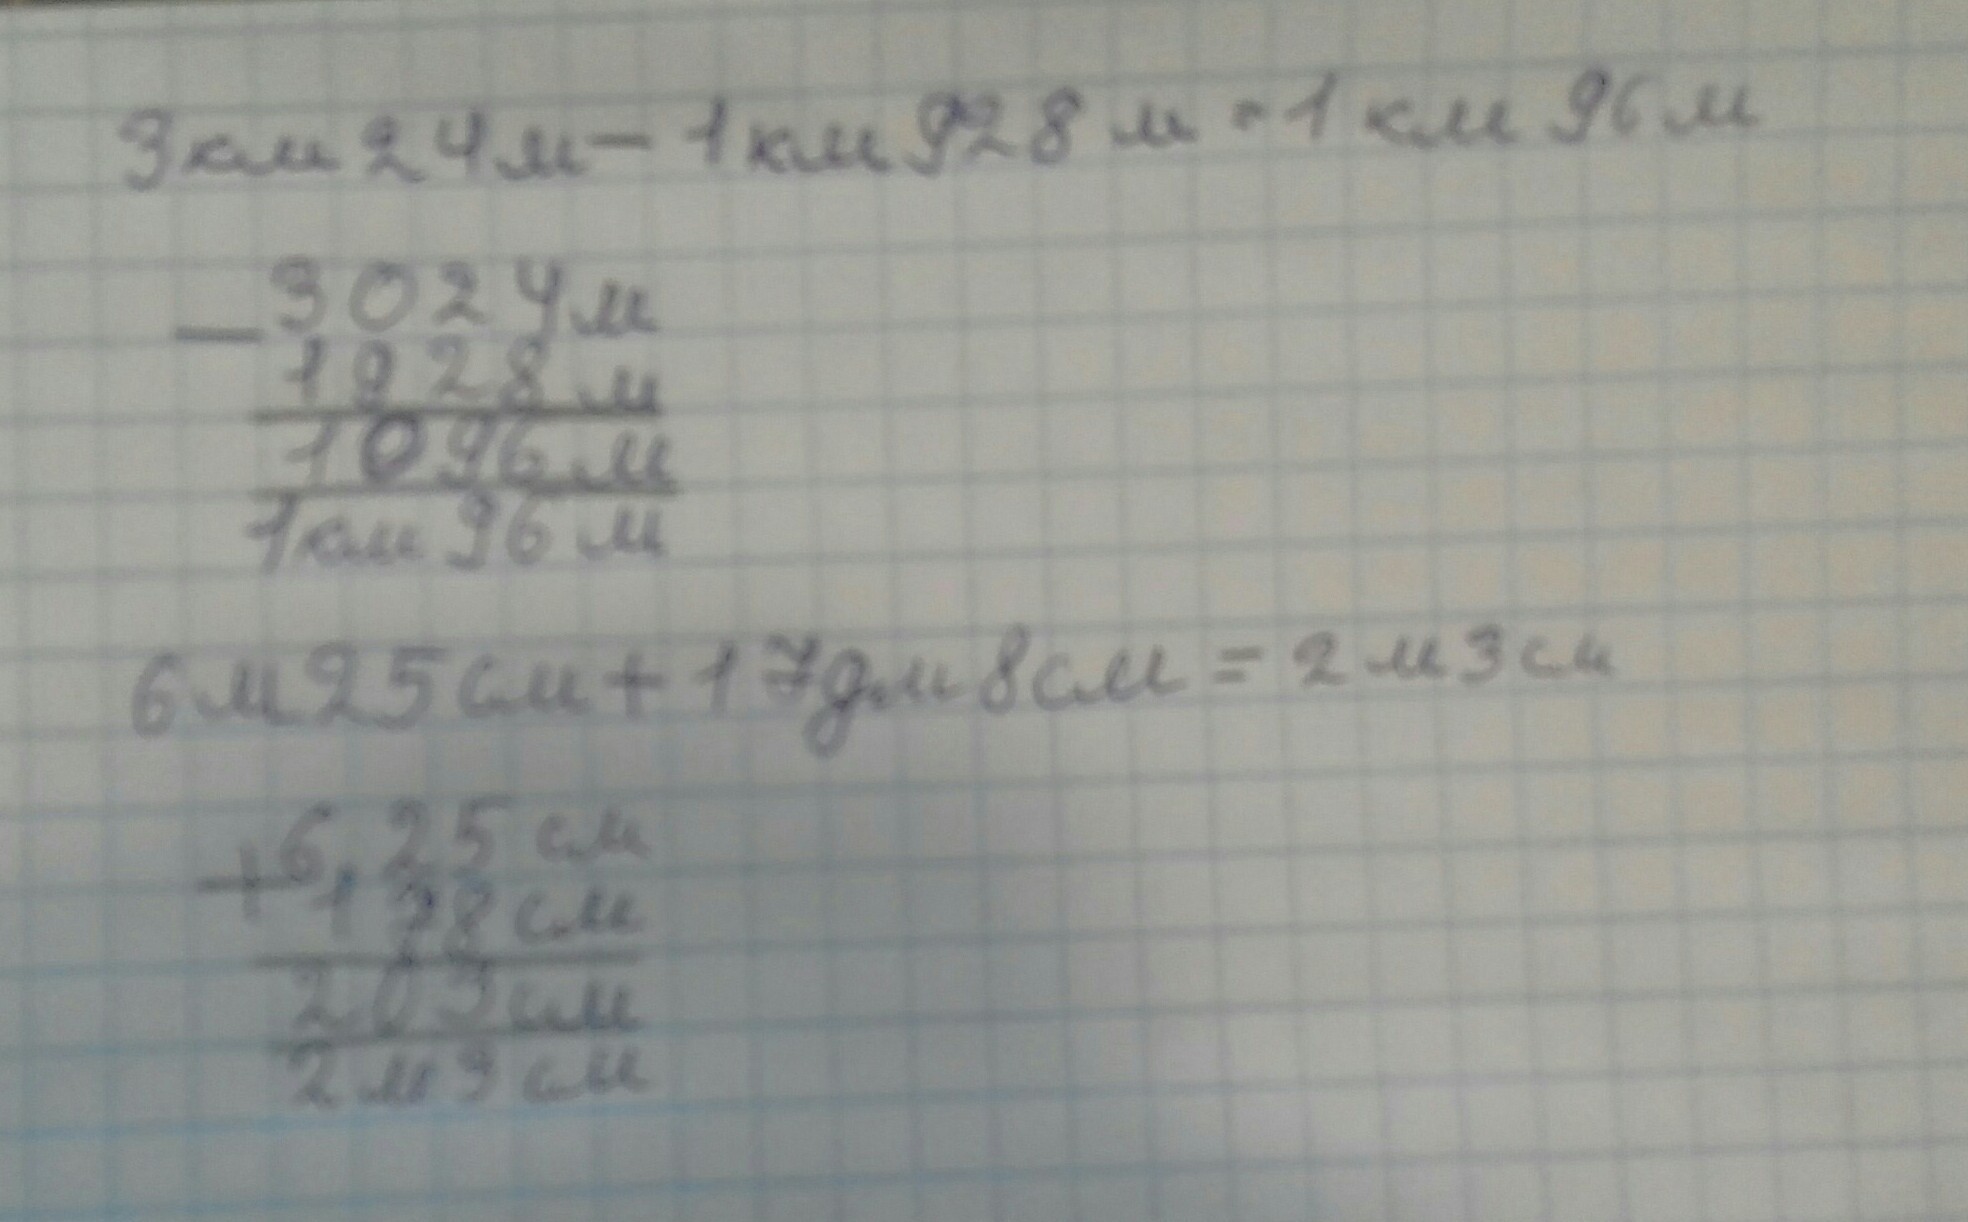 3км24м-1км928м=1км 96м
-3024м
1928м
1096м
1км 96м
6м25см+17дм8см=2м3см
+6,25см
178см
203см
2м3см